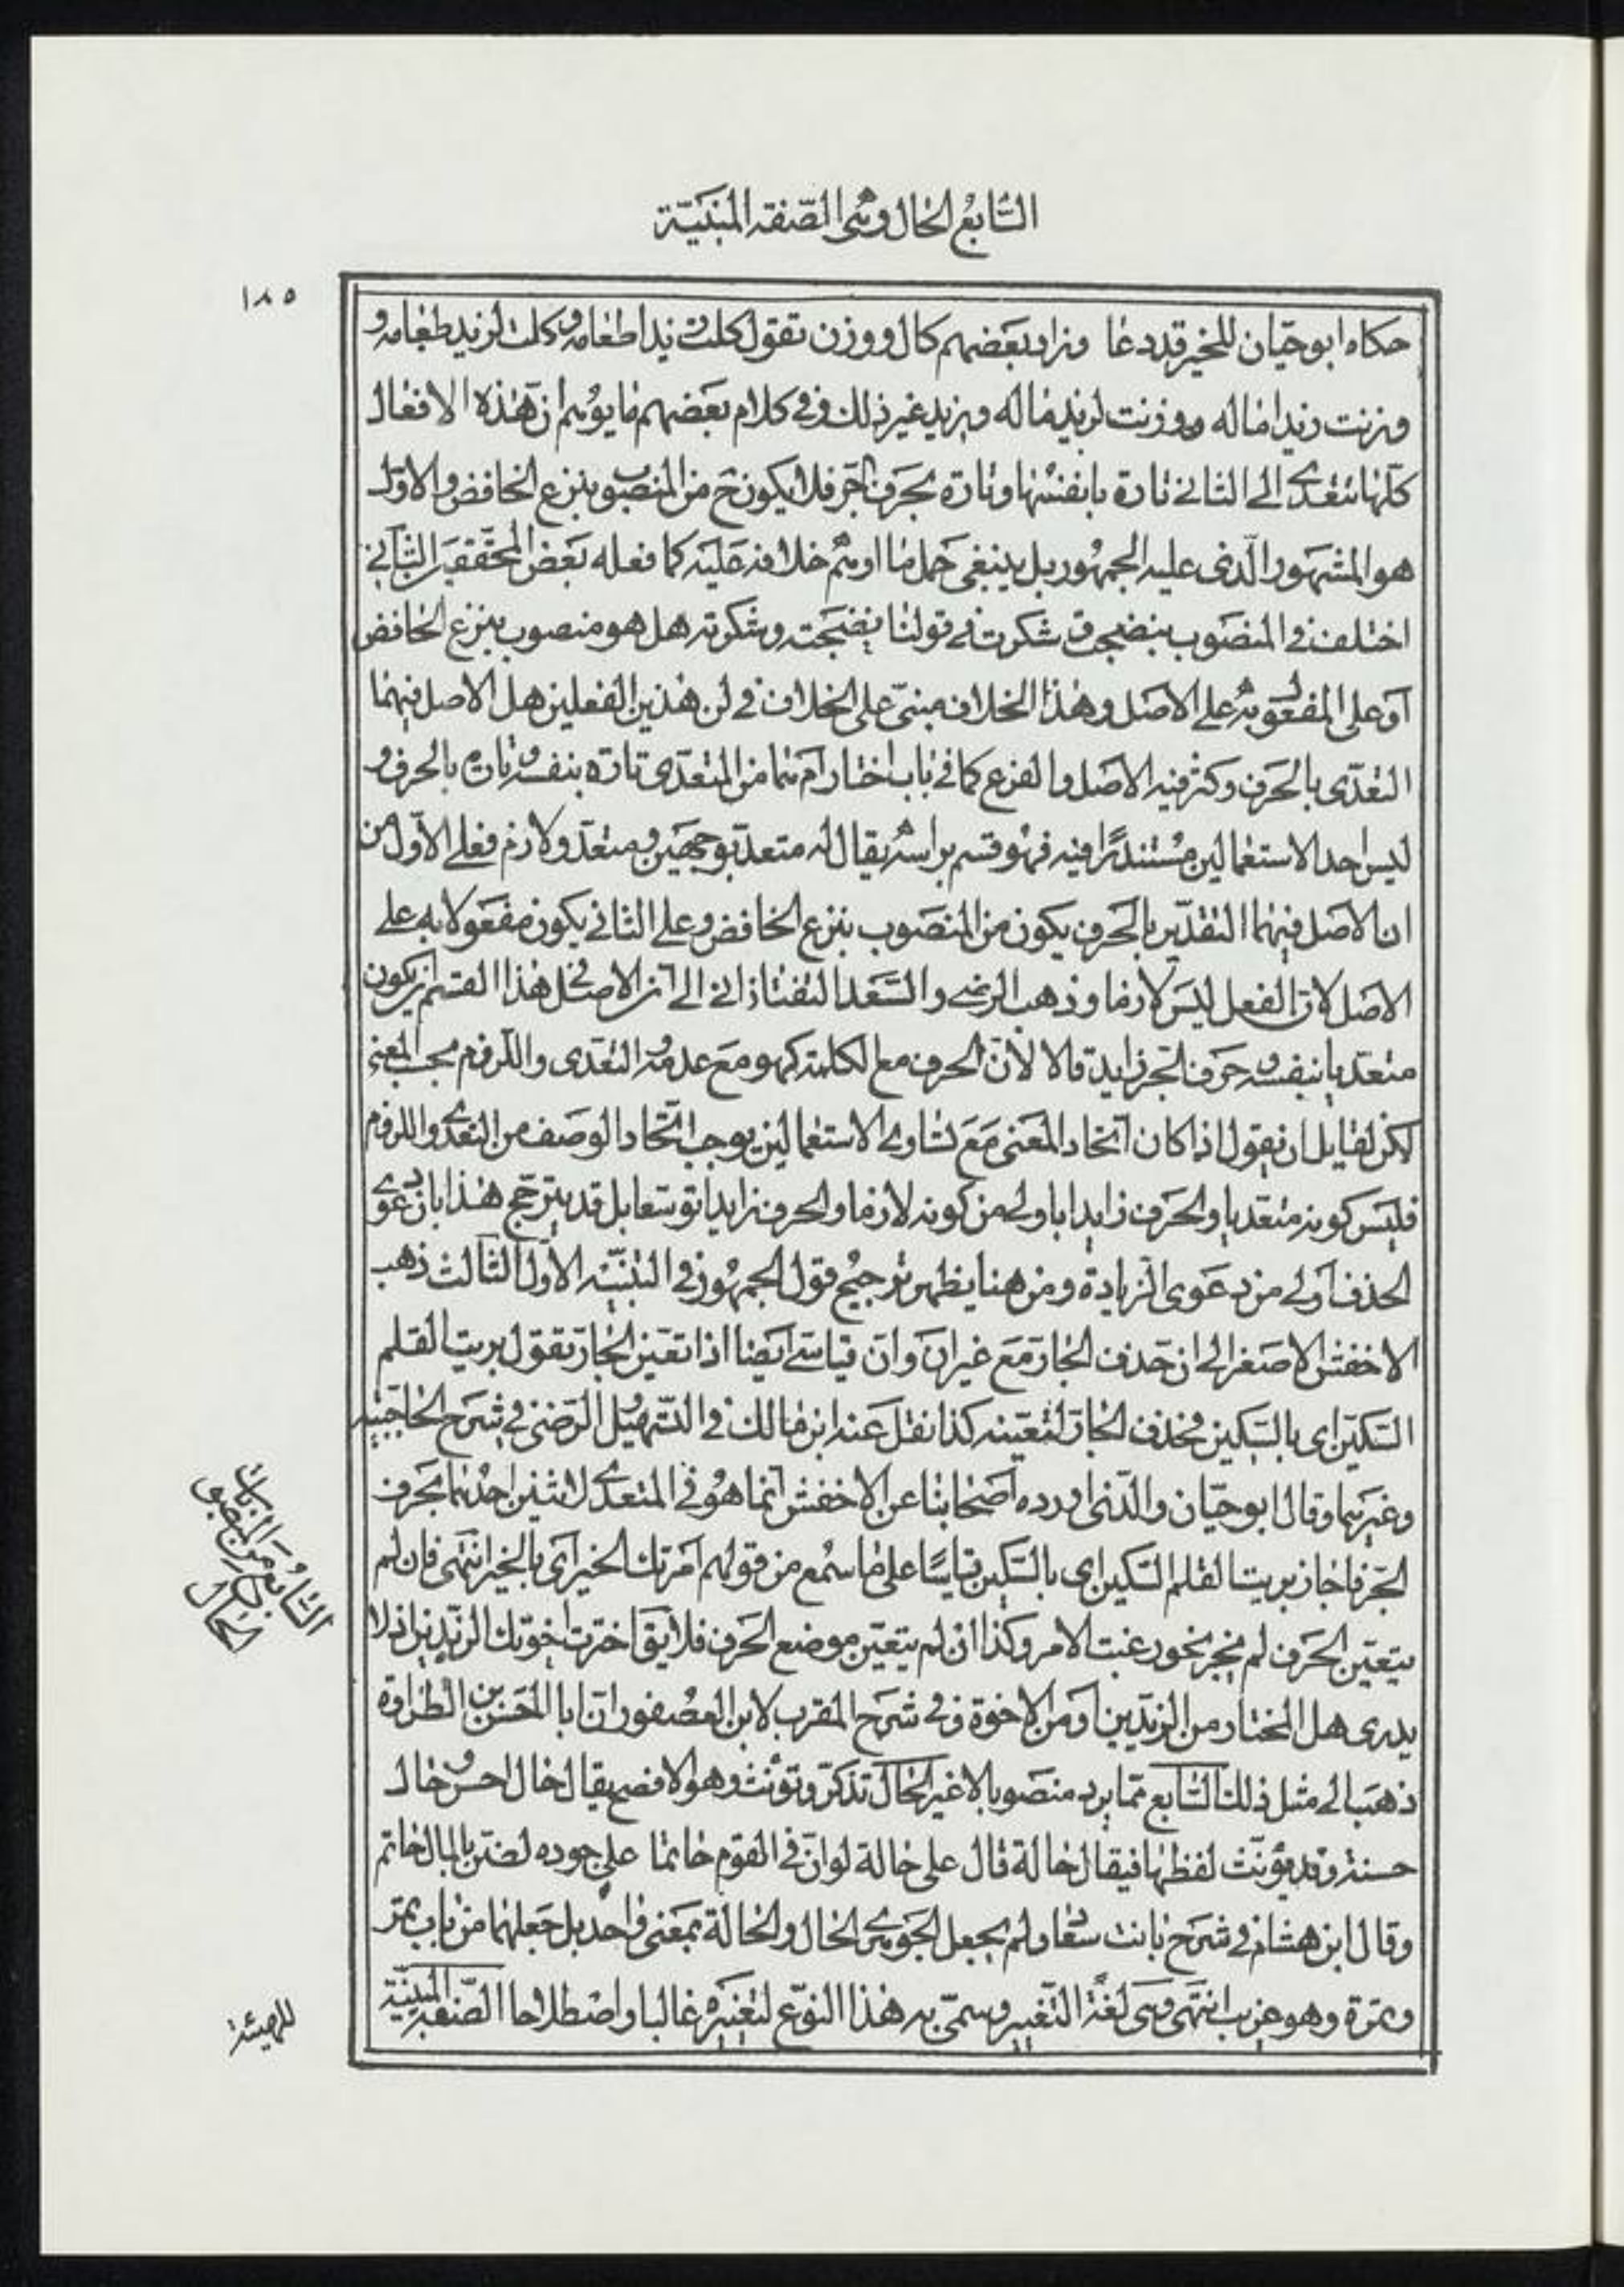 السّابع الحال وهى الصّفة المبنيّة
١٨٥
حكاه ابو حيّان للخير قد دعا وزاد بعضهم كال ووزن تقول كلت زيدا طعامه وكلت لزيد طعامه و
وزنت زيدا ماله ووزنت لزيد ماله ويزيد غير ذلك وفى كلام بعضهم ما يوهم انّ هذه الافعال
كلّها تتعدى الى الثانى تارة بانفسها وتارة بحرف الجرّ فلا يكون ح من المنصوب بنزع الخافض والاوّل
هو المشهور الّذى عليه الجمهور بل ينبغى حمل ما اوهم خلافه عليه كما فعله بعض المحقّقين الثّانى
اختلف فى المنصوب بنصحت وشكرت فى قولنا نصحته وشكرته هل هو منصوب بنزع الخافض
او على المفعول به على الاصل وهذا الخلاف مبنىّ على الخلاف فى ان هذين الفعلين هل الاصل فيهما
التعدّى بالحرف وكثر فيه الاصل والفرع كما فى باب اختار ام هما من المتعدّى تارة بنفسه وتارة بالحرف و
ليس احد الاستعمالين مستندرًا فيه فهو قسم براسه يقال له متعد بوجهين ومتعدّ ولازم فعلى الاوّل من
ان الاصل فيهما التقدير بالحرف يكون من المنصوب بنزع الخافض وعلى الثانى يكون مفعولا به على
الاصل لانّ الفعل ليس لازما وذهب الرضى والسّعد التفتازانى الى انّ الاصل فى هذا القسم ان يكون
متعدّيا بنفسه وحرف الجر زايدة قالا لانّ الحرف مع الكلمة كهو مع عدمه التعدى واللّزوم بحسب المعنى
لكن لقايل ان يقول اذا كان اتحاد المعنى مع تساوى الاستعمالين يوجب اتّحاد الوصف من التعدى واللزوم
فليس كونه متعديا والحرف زايدا باولى من كونه لازما والحرف زايدا توسعا بل قد يترجح هذا بان دعوى
الحذف اولى من دعوى الزيادة ومن هنا يظهر ترجيح قول الجمهور فى التنبيه الاوّل الثّالث ذهب
الاخفش الاصغر الى ان حذف الجار مع غير انّ وان قياسى ايضا اذا تعيّن الجار تقول بريت القلم
السّكين اى بالسّكين فحذف الجار لتعينه كذا نقل عنه ابن مالك فى التّسهيل الرّضى فى شرح الحاجبيه
وغيرهما وقال ابو حيّان والّذى اورده اصحابنا عن الاخفش انّما هو فى المتعدى لاثنين احدهما بحرف
الجرّ فاجاز بريت القلم السّكين اى بالسّكين قياسًا على ما سمع من قولهم امرتك الخير اى بالخير انتهى فان لم
يتعيّن الحرف لم يجز نحو رغبت الامر وكذا ان لم يتعيّن موضع الحرف فلا يق اخترت اخوتك الزّيدين اذ لا
يدرى هل المختار من الزيدين او من الاخوة وفى شرح المقرب لابن العصفور انّ ابا الحسن بن الطراوة
ذهب الى مثل ذلك السّابع ممّا يرد منصوبا لا غير الحال تذكّر وتؤنّث وهو الافصح يقال حال حسن وحال
حسنة وقد يؤنّث لفظها فيقال حالة قال على حالة لو انّ فى القوم حاتما على جوده لضنّ بالمال حاتم
وقال ابن هشام فى شرح بانت سعاد لم يجعل الجوهرى الحال والحالة بمعنى واحد بل جعلهما من باب تمر
وتمرة وهو غريب انتهى وهى لغة التّغيير وسمّى به هذا النوع لتغيره غالبا واصطلاحا الصّفة المبنيّة
السّابع من المنصوبات
الحال
للهيئة